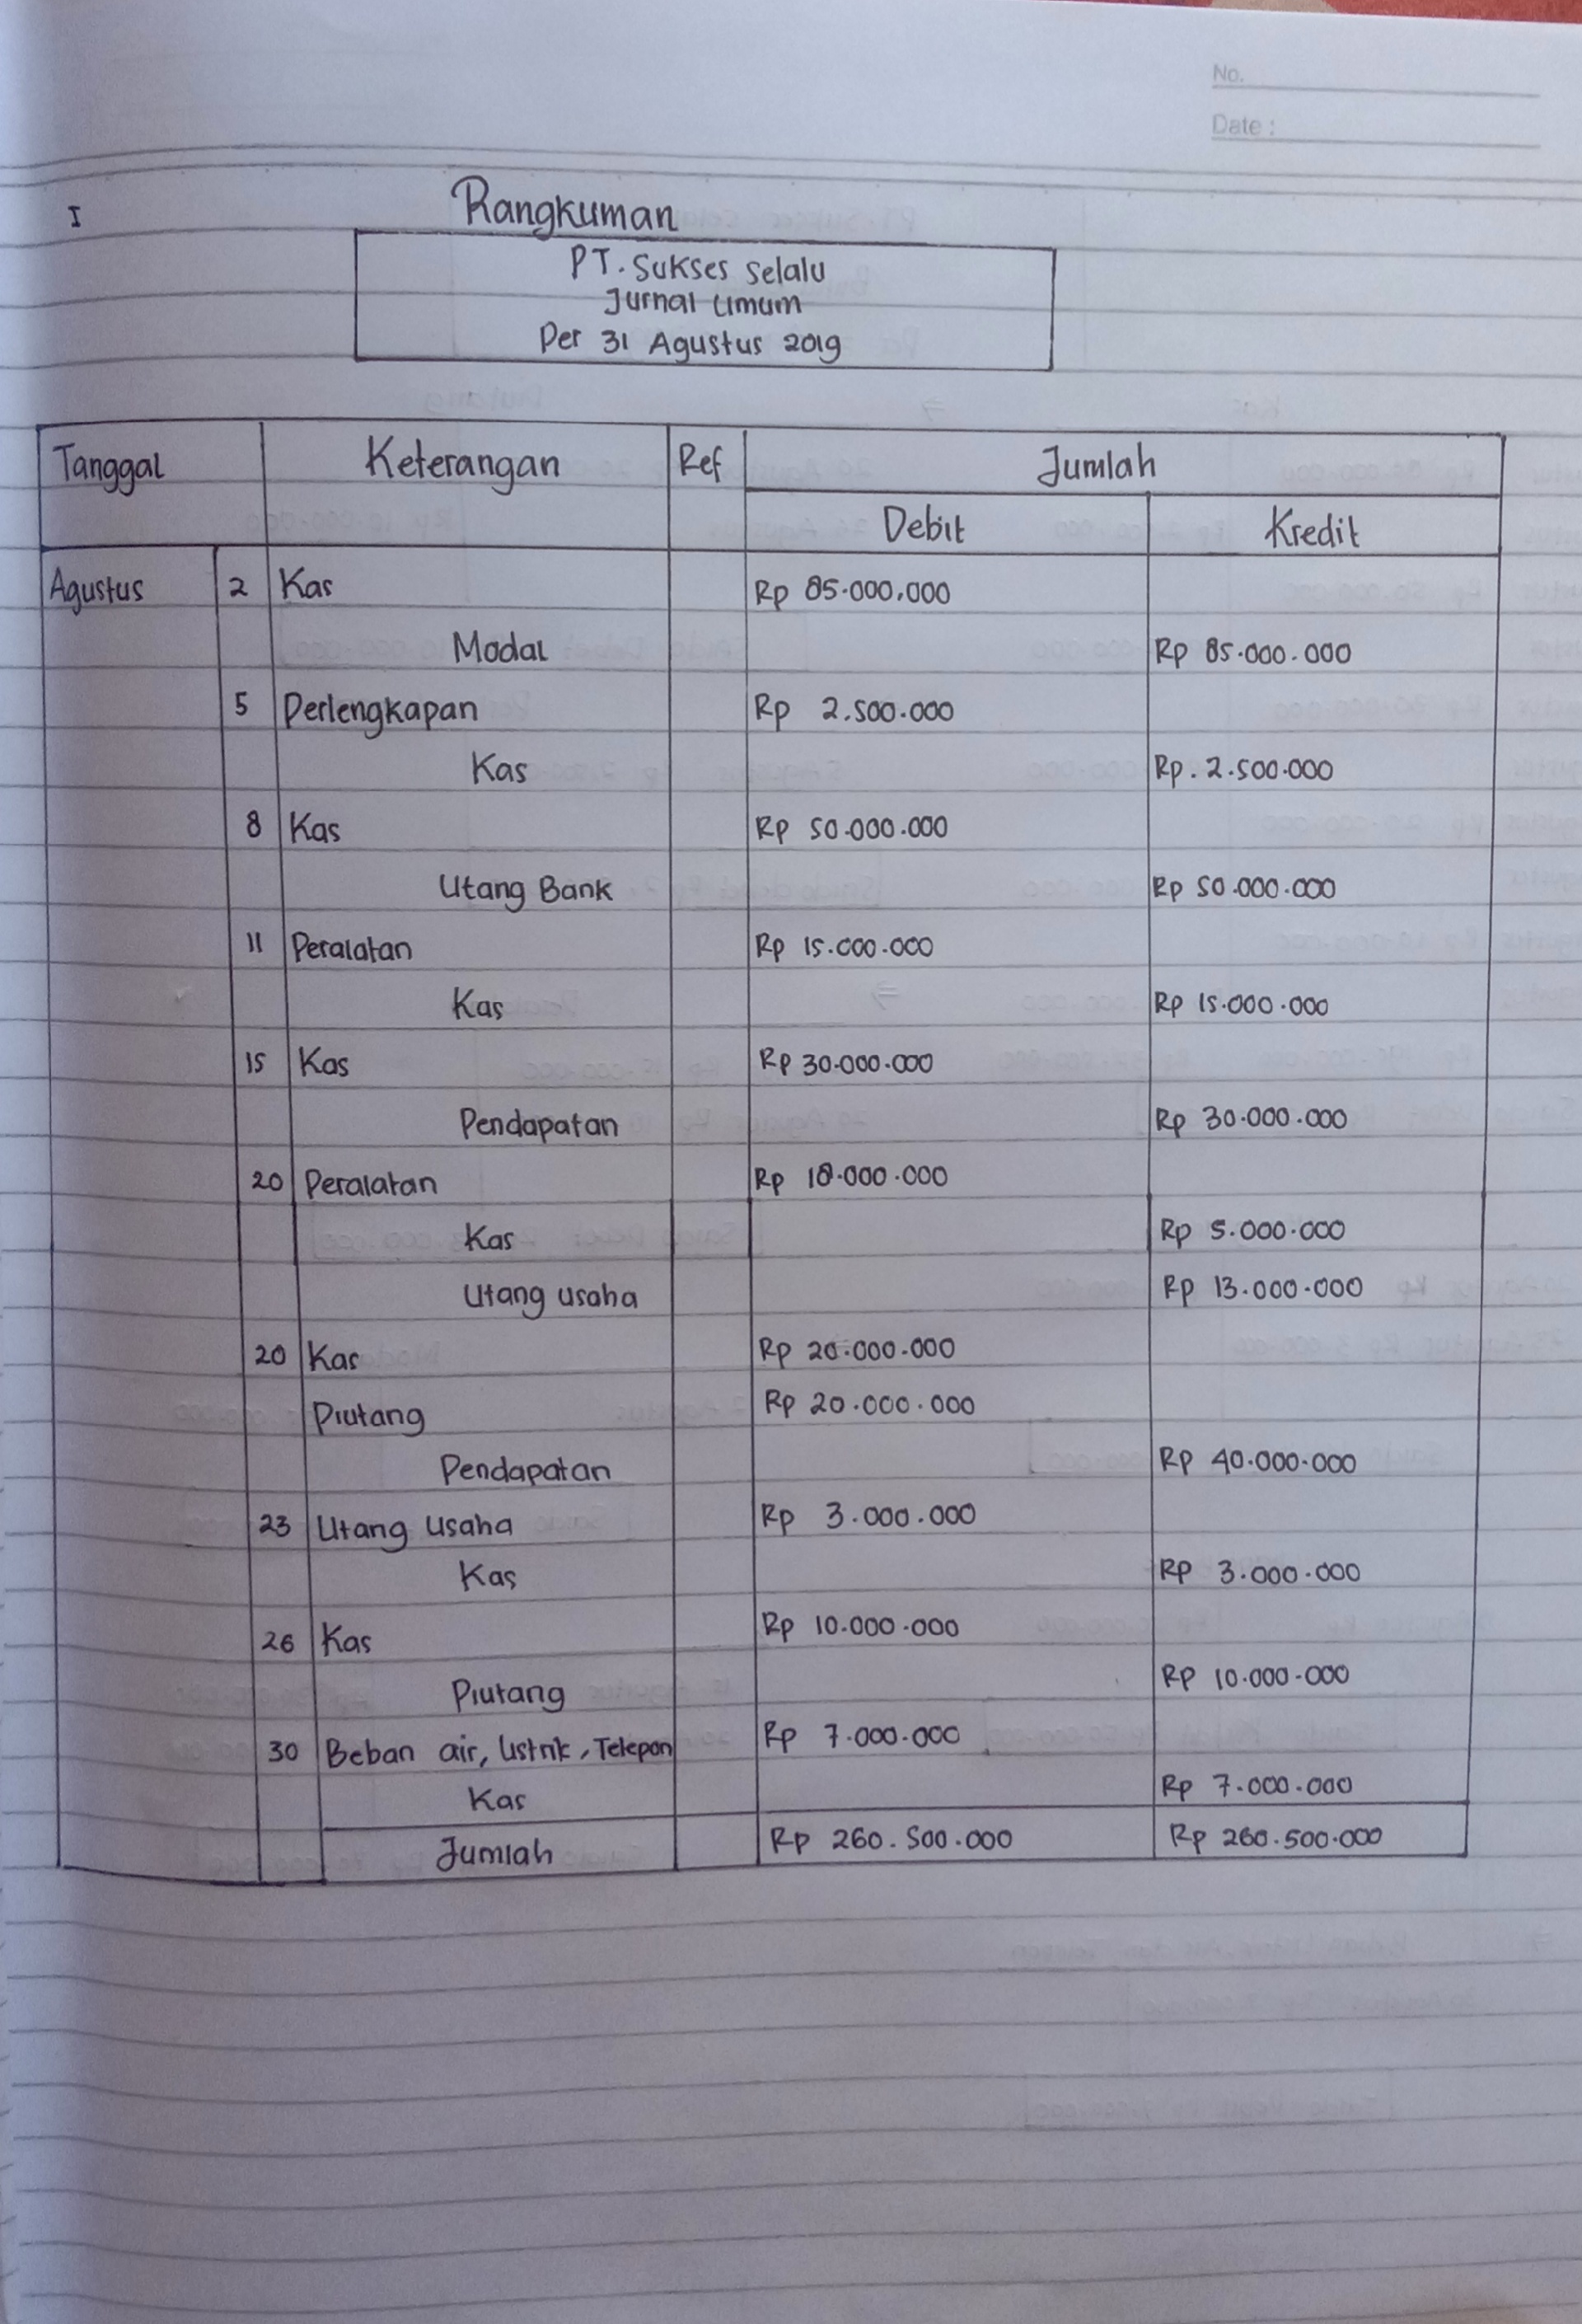 No.
Date :
I
Rangkuman
PT. Sukses Selalu
Jurnal Umum
Per 31 Agustus 2019
Tanggal Keterangan Ref Jumlah
Debit Kredit
Agustus 2 Kas Rp 85.000.000
Modal Rp 85.000.000
5 Perlengkapan Rp 2.500.000
Kas Rp. 2.500.000
8 Kas Rp 50.000.000
Utang Bank Rp 50.000.000
11 Peralatan Rp 15.000.000
Kas Rp 15.000.000
15 Kas Rp 30.000.000
Pendapatan Rp 30.000.000
20 Peralatan Rp 18.000.000
Kas Rp 5.000.000
Utang usaha Rp 13.000.000
20 Kas Rp 20.000.000
Piutang Rp 20.000.000
Pendapatan Rp 40.000.000
23 Utang Usaha Rp 3.000.000
Kas Rp 3.000.000
26 Kas Rp 10.000.000
Piutang Rp 10.000.000
30 Beban air, Listrik, Telepon Rp 7.000.000
Kas Rp 7.000.000
Jumlah Rp 260.500.000 Rp 260.500.000